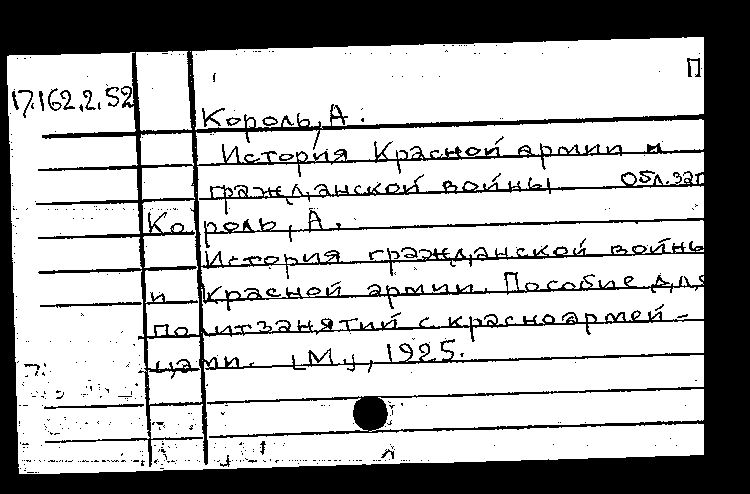 П
17.162.2.52
Король, А.
История Красной армии и
гражданской войны Обл. заг
Король, А.
История гражданской войны
и Красной армии. Пособие для
политзанятий с красноармей-
цами. [М.], 1925.